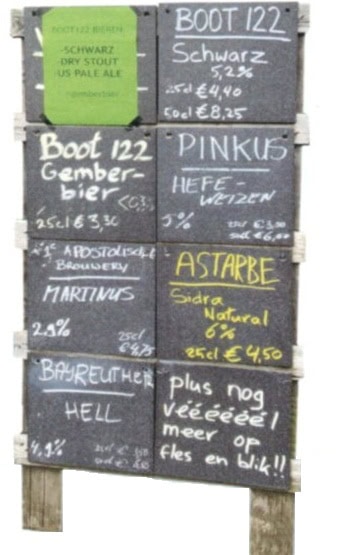 BOOT 122 BIEREN
-SCHWARZ
-DRY STOUT
-US PALE ALE
BOOT 122
Schwarz
5,2%
25cl €4,40
50cl €8,25
Boot 122
Gember-
bier
25cl €3,30
PINKUS
HEFE-
WEIZEN
5%
APOSTOLISCHE
BROUWERY
MARTINUS
2.9%
25cl
€4,75
ASTARBE
Sidra
Natural
6%
25cl €4,50
BAYREUTHER
HELL
4,9%
plus nog
véééééél
meer op
fles en blik!!